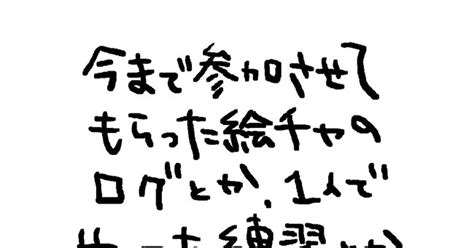 今まで参加させて
もらった絵チャの
ログとか、1人で
やった練習とか